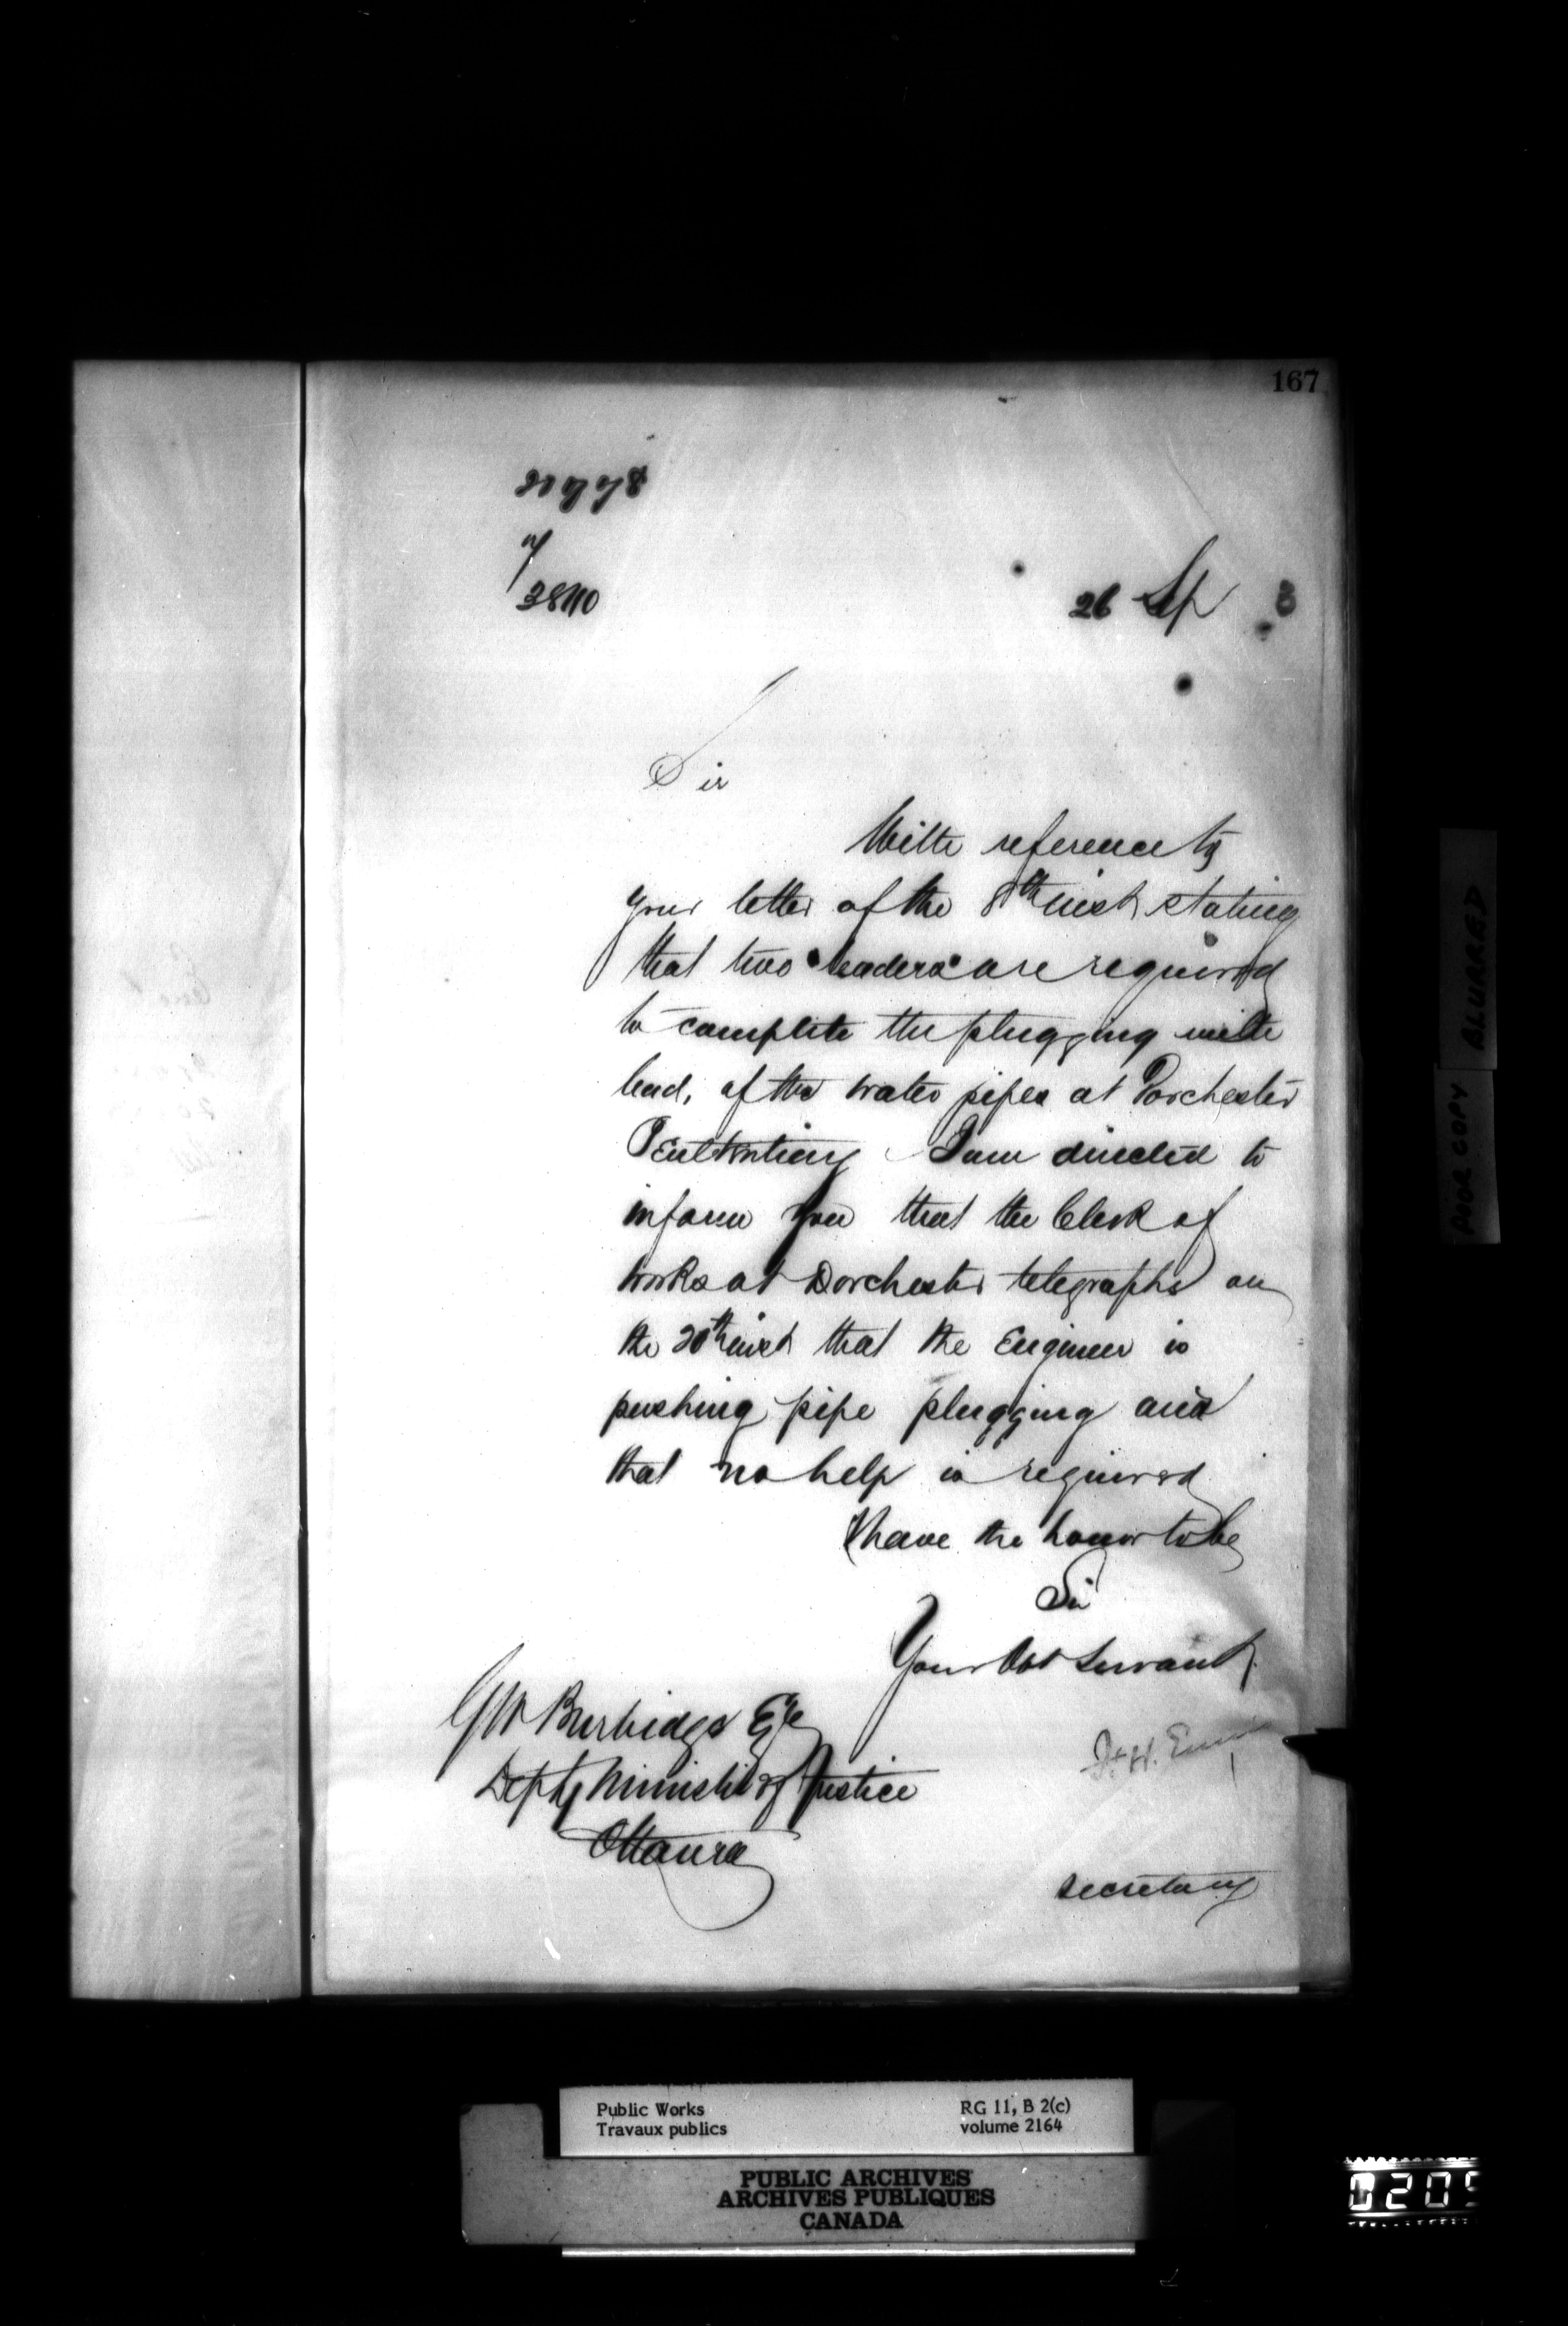 167
26 Sep 3
Sir
With reference to
your letter of the 8th inst stating
that two "leaders" are required
to complete the plugging with
lead, of the water pipes at Dorchester
Penitentiary I am directed to
inform you that the Clerk of
works at Dorchester telegraphs on
the 20th inst that the Engineer is
pushing pipe plugging and
that no help is required
I have the honor to be
Sir
Your Obt Servant
G W Burbidge Esqe
Depty Minister of Justice
Ottawa
secretary
POOR COPY BLURRED
Public Works
Travaux publics
RG 11, B 2(c)
volume 2164
PUBLIC ARCHIVES
ARCHIVES PUBLIQUES
CANADA